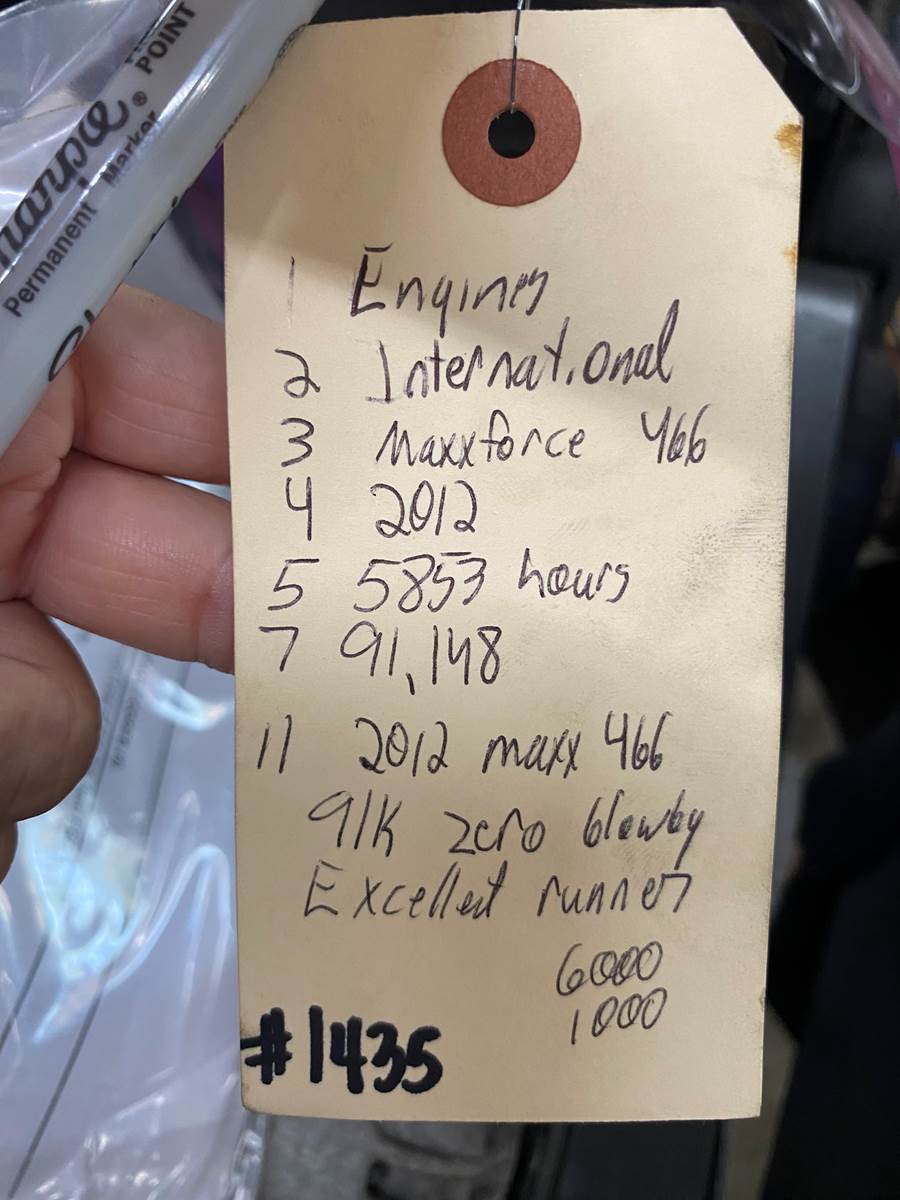 POINT
Permanent Marker
1 Engines
2 International
3 Maxxforce 466
4 2012
5 5853 hours
7 91,148
11 2012 maxx 466
91K zero blowby
Excellent runner
6000
1000
#1435